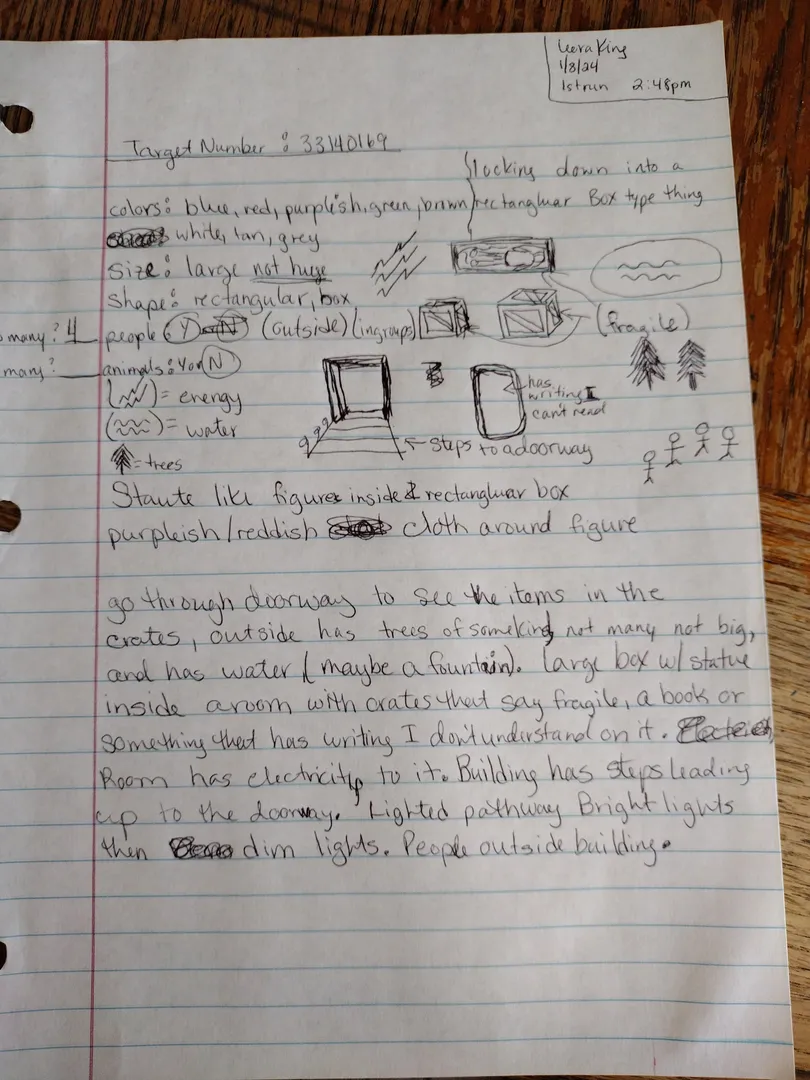 1/8/24
1st run 2:48pm
Target Number : 33140169
looking down into a
rectangluar Box type thing
colors: blue, red, purpleish, green, brown
white, tan, grey
size: large not huge
shape: rectangular, box
many? 4 people Y N (outside) (ingroups)
(fragile)
many? animals: Y or N
( ) = energy
has
writing I
can't read
( ) = water
steps to a doorway
= trees
Staute like figure inside rectangluar box
purpleish/reddish cloth around figure
go through doorway to see the items in the
crates, outside has trees of somekind not many not big,
and has water (maybe a fountain). large box w/ statue
inside a room with crates that say fragile, a book or
something that has writing I don't understand on it.
Room has electricity to it. Building has steps leading
up to the doorway. Lighted pathway Bright lights
then dim lights. People outside building.